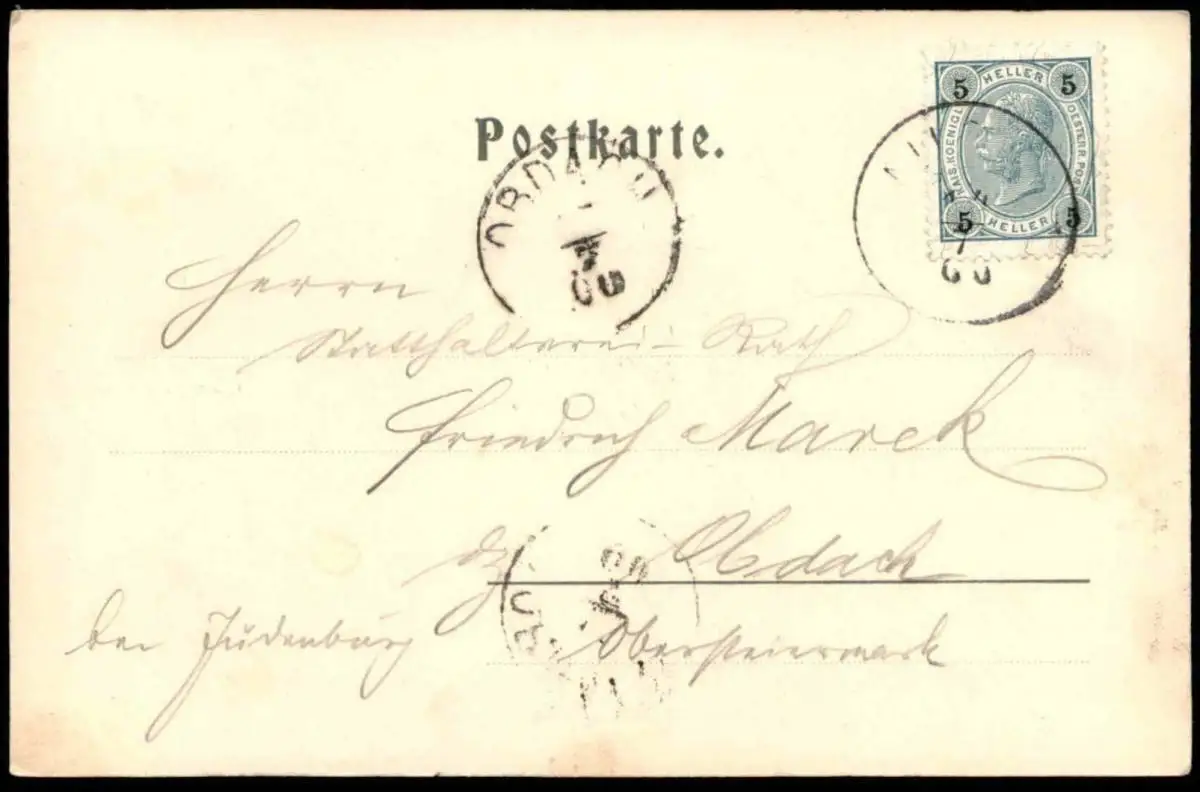 Postkarte.
5 HELLER 5
RAIS. KOENIGL. OESTERR. POST
5 HELLER 5
OBDACH
Herrn
Statthalterei-Rath
Friedrich Marek
dz Obdach
bei Judenburg Obersteiermark